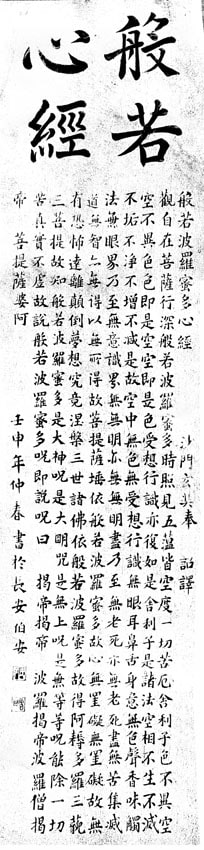 般若
心經
般若波羅蜜多心經 沙門玄奘奉 詔譯
觀自在菩薩行深般若波羅蜜多時照見五蘊皆空度一切苦厄舍利子色不異空
空不異色色即是空空即是色受想行識亦復如是舍利子是諸法空相不生不滅
不垢不淨不增不減是故空中無色無受想行識無眼耳鼻舌身意無色聲香味觸
法無眼界乃至無意識界無無明亦無無明盡乃至無老死亦無老死盡無苦集滅
道無智亦無得以無所得故菩提薩埵依般若波羅蜜多故心無罣礙無罣礙故無
有恐怖遠離顛倒夢想究竟涅槃三世諸佛依般若波羅蜜多故得阿耨多羅三藐
三菩提故知般若波羅蜜多是大神呪是大明呪是無上呪是無等等呪能除一切
苦真實不虛故說般若波羅蜜多呪即說呪曰 揭帝揭帝 波羅揭帝 波羅僧揭
帝 菩提薩婆阿 壬申年仲春書於長安伯安